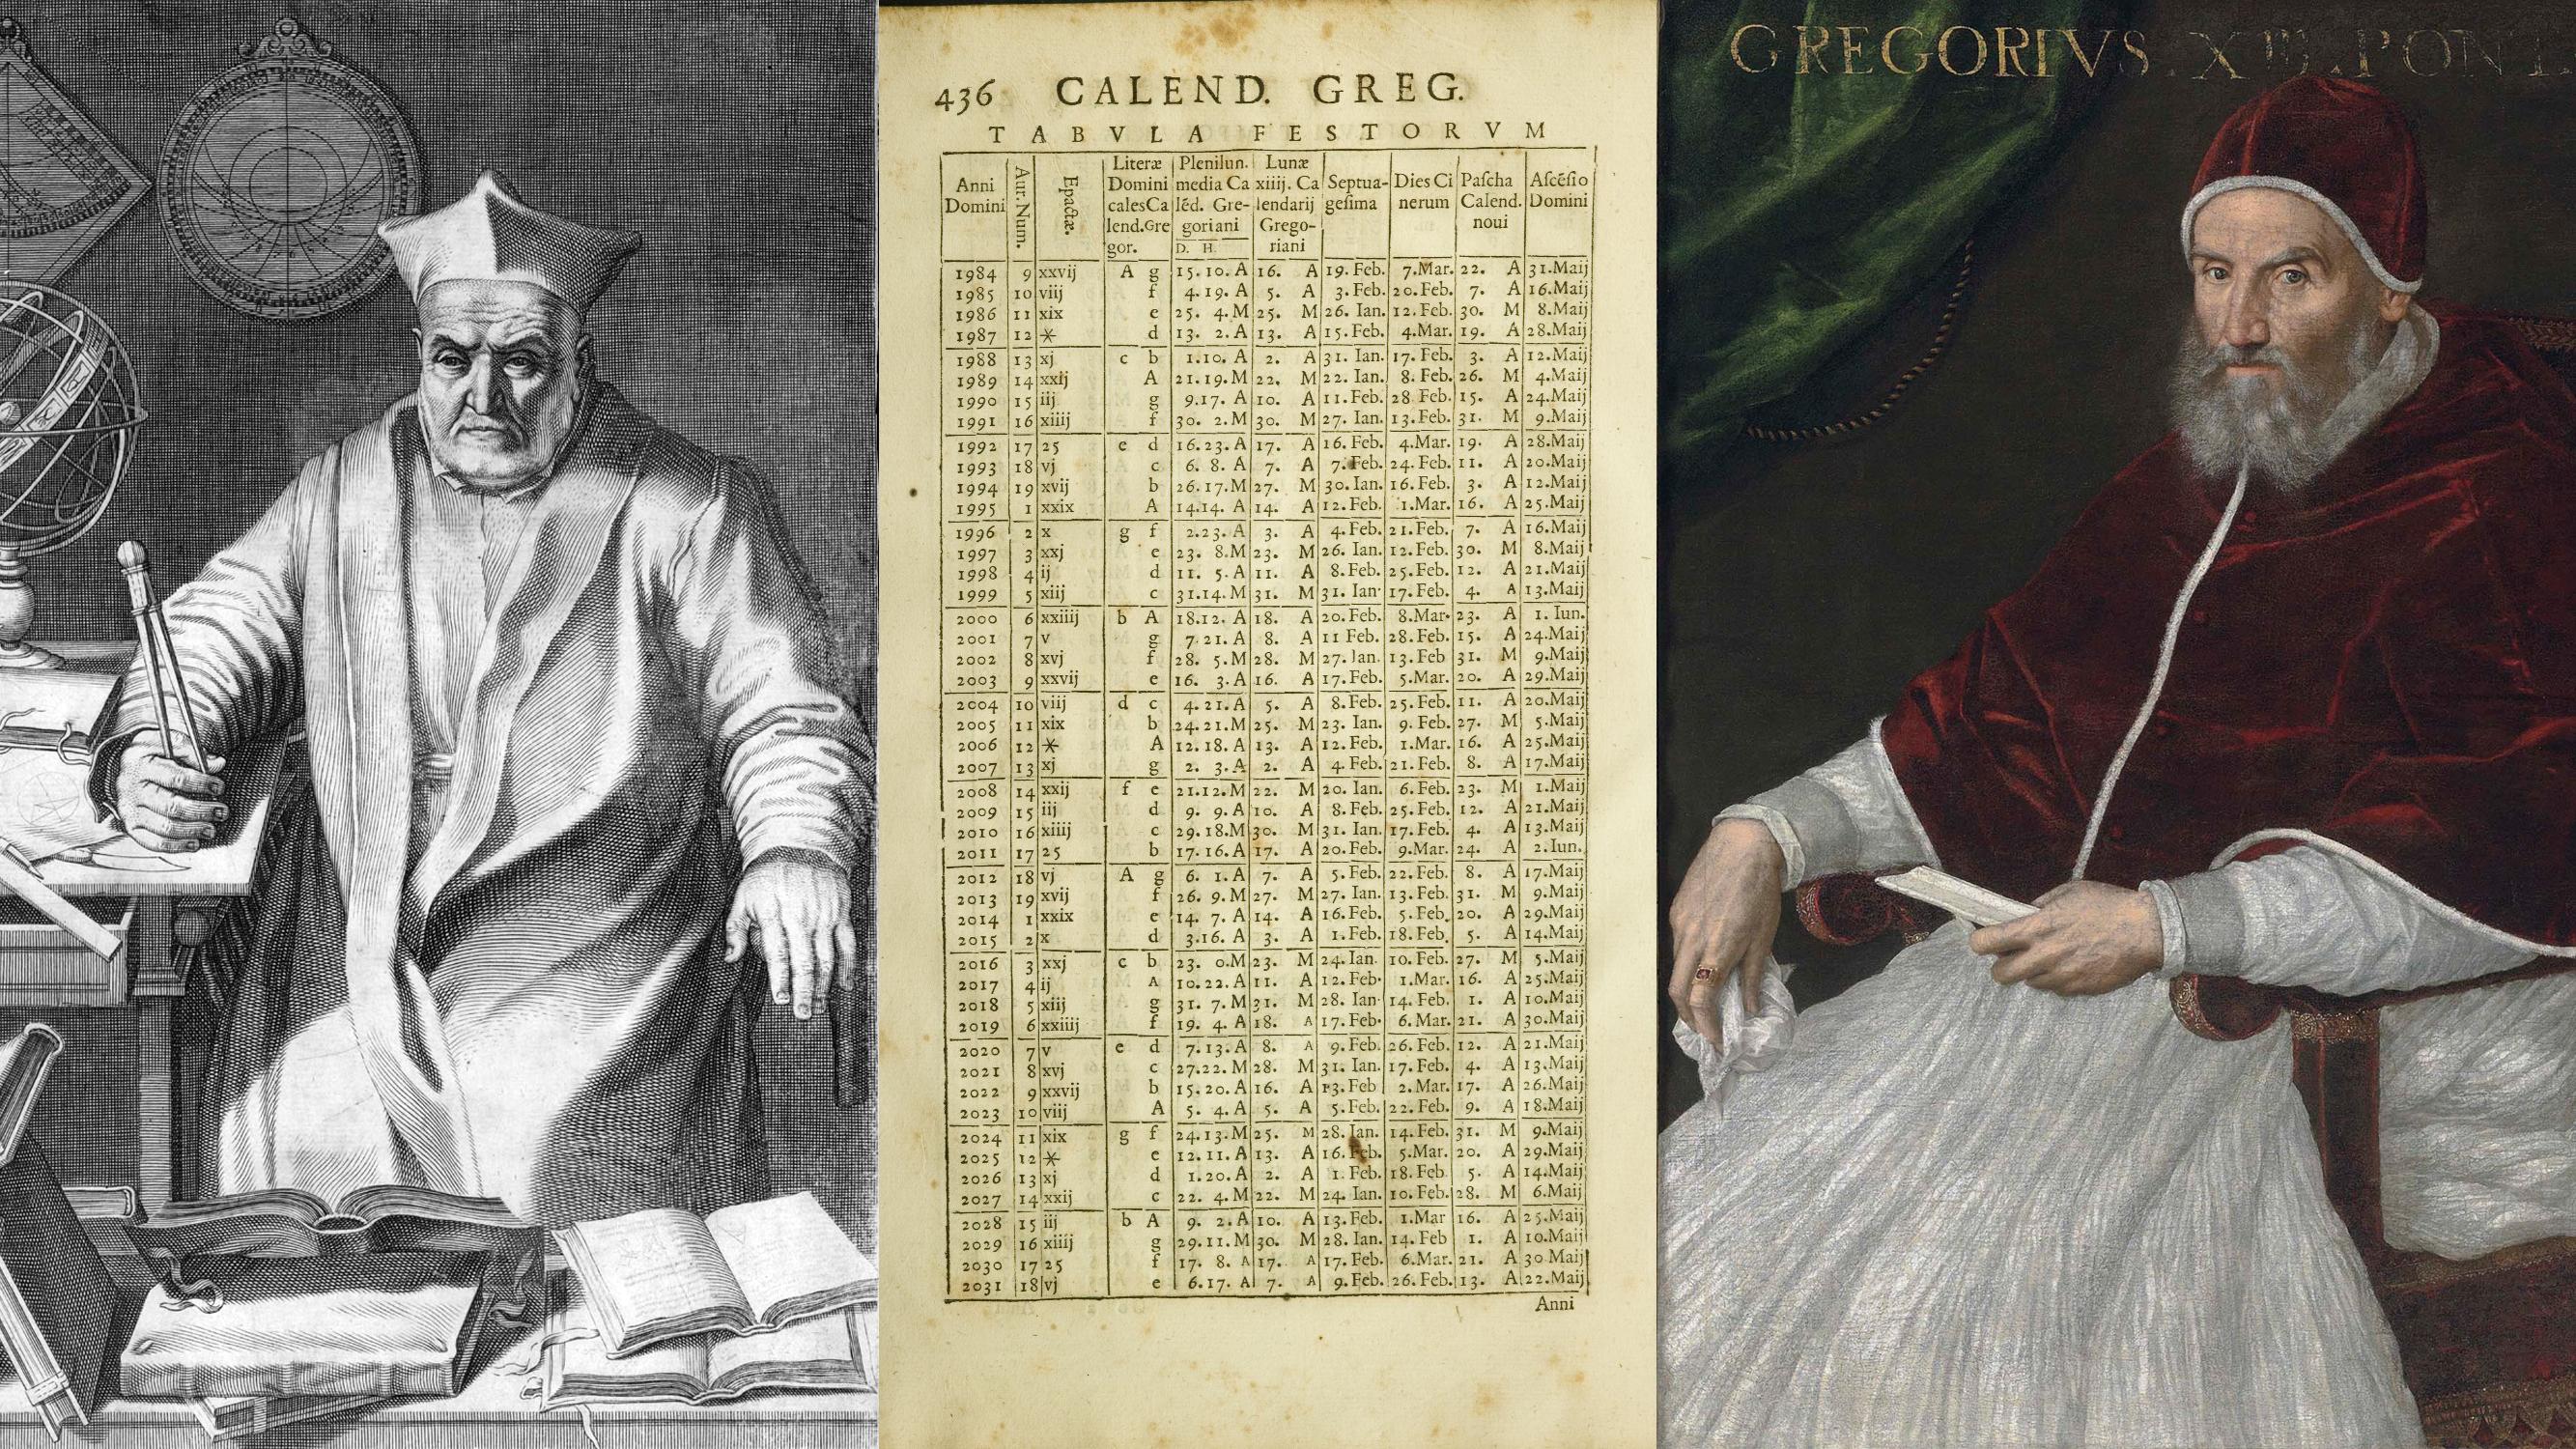 436 CALEND. GREG.
TABVLA FESTORVM
Anni Domini | Aur. Num. | Epactæ. | Literæ Domini calesCa lend.Gre gor. | Plenilun. media Ca lēd. Gre- goriani D. H. | Lunæ xiiij. Ca lendarij Grego- riani | Septua- gesima | Dies Ci nerum | Pascha Calend. noui | Ascēsio Domini
1984 9 xxvij A g 15. 10. A 16. A 19. Feb. 7. Mar. 22. A 31. Maij
1985 10 viij f 4. 19. A 5. A 3. Feb. 20. Feb. 7. A 16. Maij
1986 11 xix e 25. 4. M 25. M 26. Ian. 12. Feb. 30. M 8. Maij
1987 12 * d 13. 2. A 13. A 15. Feb. 4. Mar. 19. A 28. Maij
1988 13 xj c b 1. 10. A 2. A 31. Ian. 17. Feb. 3. A 12. Maij
1989 14 xxij A 21. 19. M 22. M 22. Ian. 8. Feb. 26. M 4. Maij
1990 15 iij g 9. 17. A 10. A 11. Feb. 28 Feb. 15. A 24. Maij
1991 16 xiiij f 30. 2. M 30. M 27. Ian. 13. Feb. 31. M 9. Maij
1992 17 25 e d 16. 23. A 17. A 16. Feb. 4. Mar. 19. A 28. Maij
1993 18 vj c 6. 8. A 7. A 7. Feb. 24. Feb. 11. A 20. Maij
1994 19 xvij b 26. 17. M 27. M 30. Ian. 16. Feb. 3. A 12. Maij
1995 1 xxix A 14. 14. A 14. A 12. Feb. 1. Mar. 16. A 25. Maij
1996 2 x g f 2. 23. A 3. A 4. Feb. 21. Feb. 7. A 16. Maij
1997 3 xxj e 23. 8. M 23. M 26. Ian. 12. Feb. 30. M 8. Maij
1998 4 ij d 11. 5. A 11. A 8. Feb. 25. Feb. 12. A 21. Maij
1999 5 xiij c 31. 14. M 31. M 31. Ian 17. Feb. 4. A 13. Maij
2000 6 xxiiij b A 18. 12. A 18. A 20. Feb. 8. Mar. 23. A 1. Iun.
2001 7 v g 7. 21. A 8. A 11 Feb. 28. Feb. 15. A 24. Maij
2002 8 xvj f 28. 5. M 28. M 27. Ian. 13. Feb 31. M 9. Maij
2003 9 xxvij e 16. 3. A 16. A 17. Feb. 5. Mar. 20. A 29. Maij
2004 10 viij d c 4. 21. A 5. A 8. Feb. 25. Feb. 11. A 20. Maij
2005 11 xix b 24. 21. M 25. M 23. Ian. 9. Feb. 27. M 5. Maij
2006 12 * A 12. 18. A 13. A 12. Feb. 1. Mar. 16. A 25. Maij
2007 13 xj g 2. 3. A 2. A 4. Feb. 21. Feb. 8. A 17. Maij
2008 14 xxij f e 21. 12. M 22. M 20. Ian. 6. Feb. 23. M 1. Maij
2009 15 iij d 9. 9. A 10. A 8. Feb. 25. Feb. 12. A 21. Maij
2010 16 xiiij c 29. 18. M 30. M 31. Ian. 17. Feb. 4. A 13. Maij
2011 17 25 b 17. 16. A 17. A 20. Feb. 9. Mar. 24. A 2. Iun.
2012 18 vj A g 6. 1. A 7. A 5. Feb. 22. Feb. 8. A 17. Maij
2013 19 xvij f 26. 9. M 27. M 27. Ian. 13. Feb. 31. M 9. Maij
2014 1 xxix e 14. 7. A 14. A 16. Feb. 5. Feb. 20. A 29. Maij
2015 2 x d 3. 16. A 3. A 1. Feb. 18. Feb. 5. A 14. Maij
2016 3 xxj c b 23. 0. M 23. M 24. Ian. 10. Feb. 27. M 5. Maij
2017 4 ij A 10. 22. A 11. A 12. Feb. 1. Mar. 16. A 25. Maij
2018 5 xiij g 31. 7. M 31. M 28. Ian 14. Feb. 1. A 10. Maij
2019 6 xxiiij f 19. 4. A 18. A 17. Feb. 6. Mar. 21. A 30. Maij
2020 7 v e d 7. 13. A 8. A 9. Feb. 26. Feb. 12. A 21. Maij
2021 8 xvj c 27. 22. M 28. M 31. Ian. 17. Feb. 4. A 13. Maij
2022 9 xxvij b 15. 20. A 16. A 13. Feb 2. Mar. 17. A 26. Maij
2023 10 viij A 5. 4. A 5. A 5. Feb. 22. Feb. 9. A 18. Maij
2024 11 xix g f 24. 13. M 25. M 28. Ian. 14. Feb. 31. M 9. Maij
2025 12 * e 12. 11. A 13. A 16. Feb. 5. Mar. 20. A 29. Maij
2026 13 xj d 1. 20. A 2. A 1. Feb. 18. Feb. 5. A 14. Maij
2027 14 xxij c 22. 4. M 22. M 24. Ian. 10. Feb. 28. M 6. Maij
2028 15 iij b A 9. 2. A 10. A 13. Feb. 1. Mar 16. A 25. Maij
2029 16 xiiij g 29. 11. M 30. M 28. Ian. 14. Feb 1. A 10. Maij
2030 17 25 f 17. 8. A 17. A 17. Feb. 6. Mar. 21. A 30 Maij
2031 18 vj e 6. 17. A 7. A 9. Feb. 26. Feb. 13. A 22. Maij
Anni
GREGORIVS . XIII . PONT